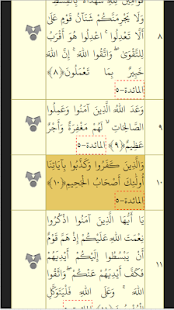 وَلَا يَجْرِمَنَّكُمْ شَنَآنُ قَوْمٍ عَلَىٰ
أَلَّا تَعْدِلُوا ۚ اعْدِلُوا هُوَ أَقْرَبُ
لِلتَّقْوَىٰ ۖ وَاتَّقُوا اللَّهَ ۚ إِنَّ اللَّهَ
خَبِيرٌ بِمَا تَعْمَلُونَ ﴿٨﴾
المائدة-٥
٨
وَعَدَ اللَّهُ الَّذِينَ آمَنُوا وَعَمِلُوا
الصَّالِحَاتِ ۙ لَهُمْ مَغْفِرَةٌ وَأَجْرٌ
عَظِيمٌ ﴿٩﴾ المائدة-٥
٩
وَالَّذِينَ كَفَرُوا وَكَذَّبُوا بِآيَاتِنَا
أُولَٰئِكَ أَصْحَابُ الْجَحِيمِ ﴿١٠﴾
المائدة-٥
١٠
يَا أَيُّهَا الَّذِينَ آمَنُوا اذْكُرُوا
نِعْمَتَ اللَّهِ عَلَيْكُمْ إِذْ هَمَّ قَوْمٌ
أَنْ يَبْسُطُوا إِلَيْكُمْ أَيْدِيَهُمْ
فَكَفَّ أَيْدِيَهُمْ عَنْكُمْ ۖ وَاتَّقُوا
اللَّهَ ۚ وَعَلَى اللَّهِ فَلْيَتَوَكَّلِ
١١